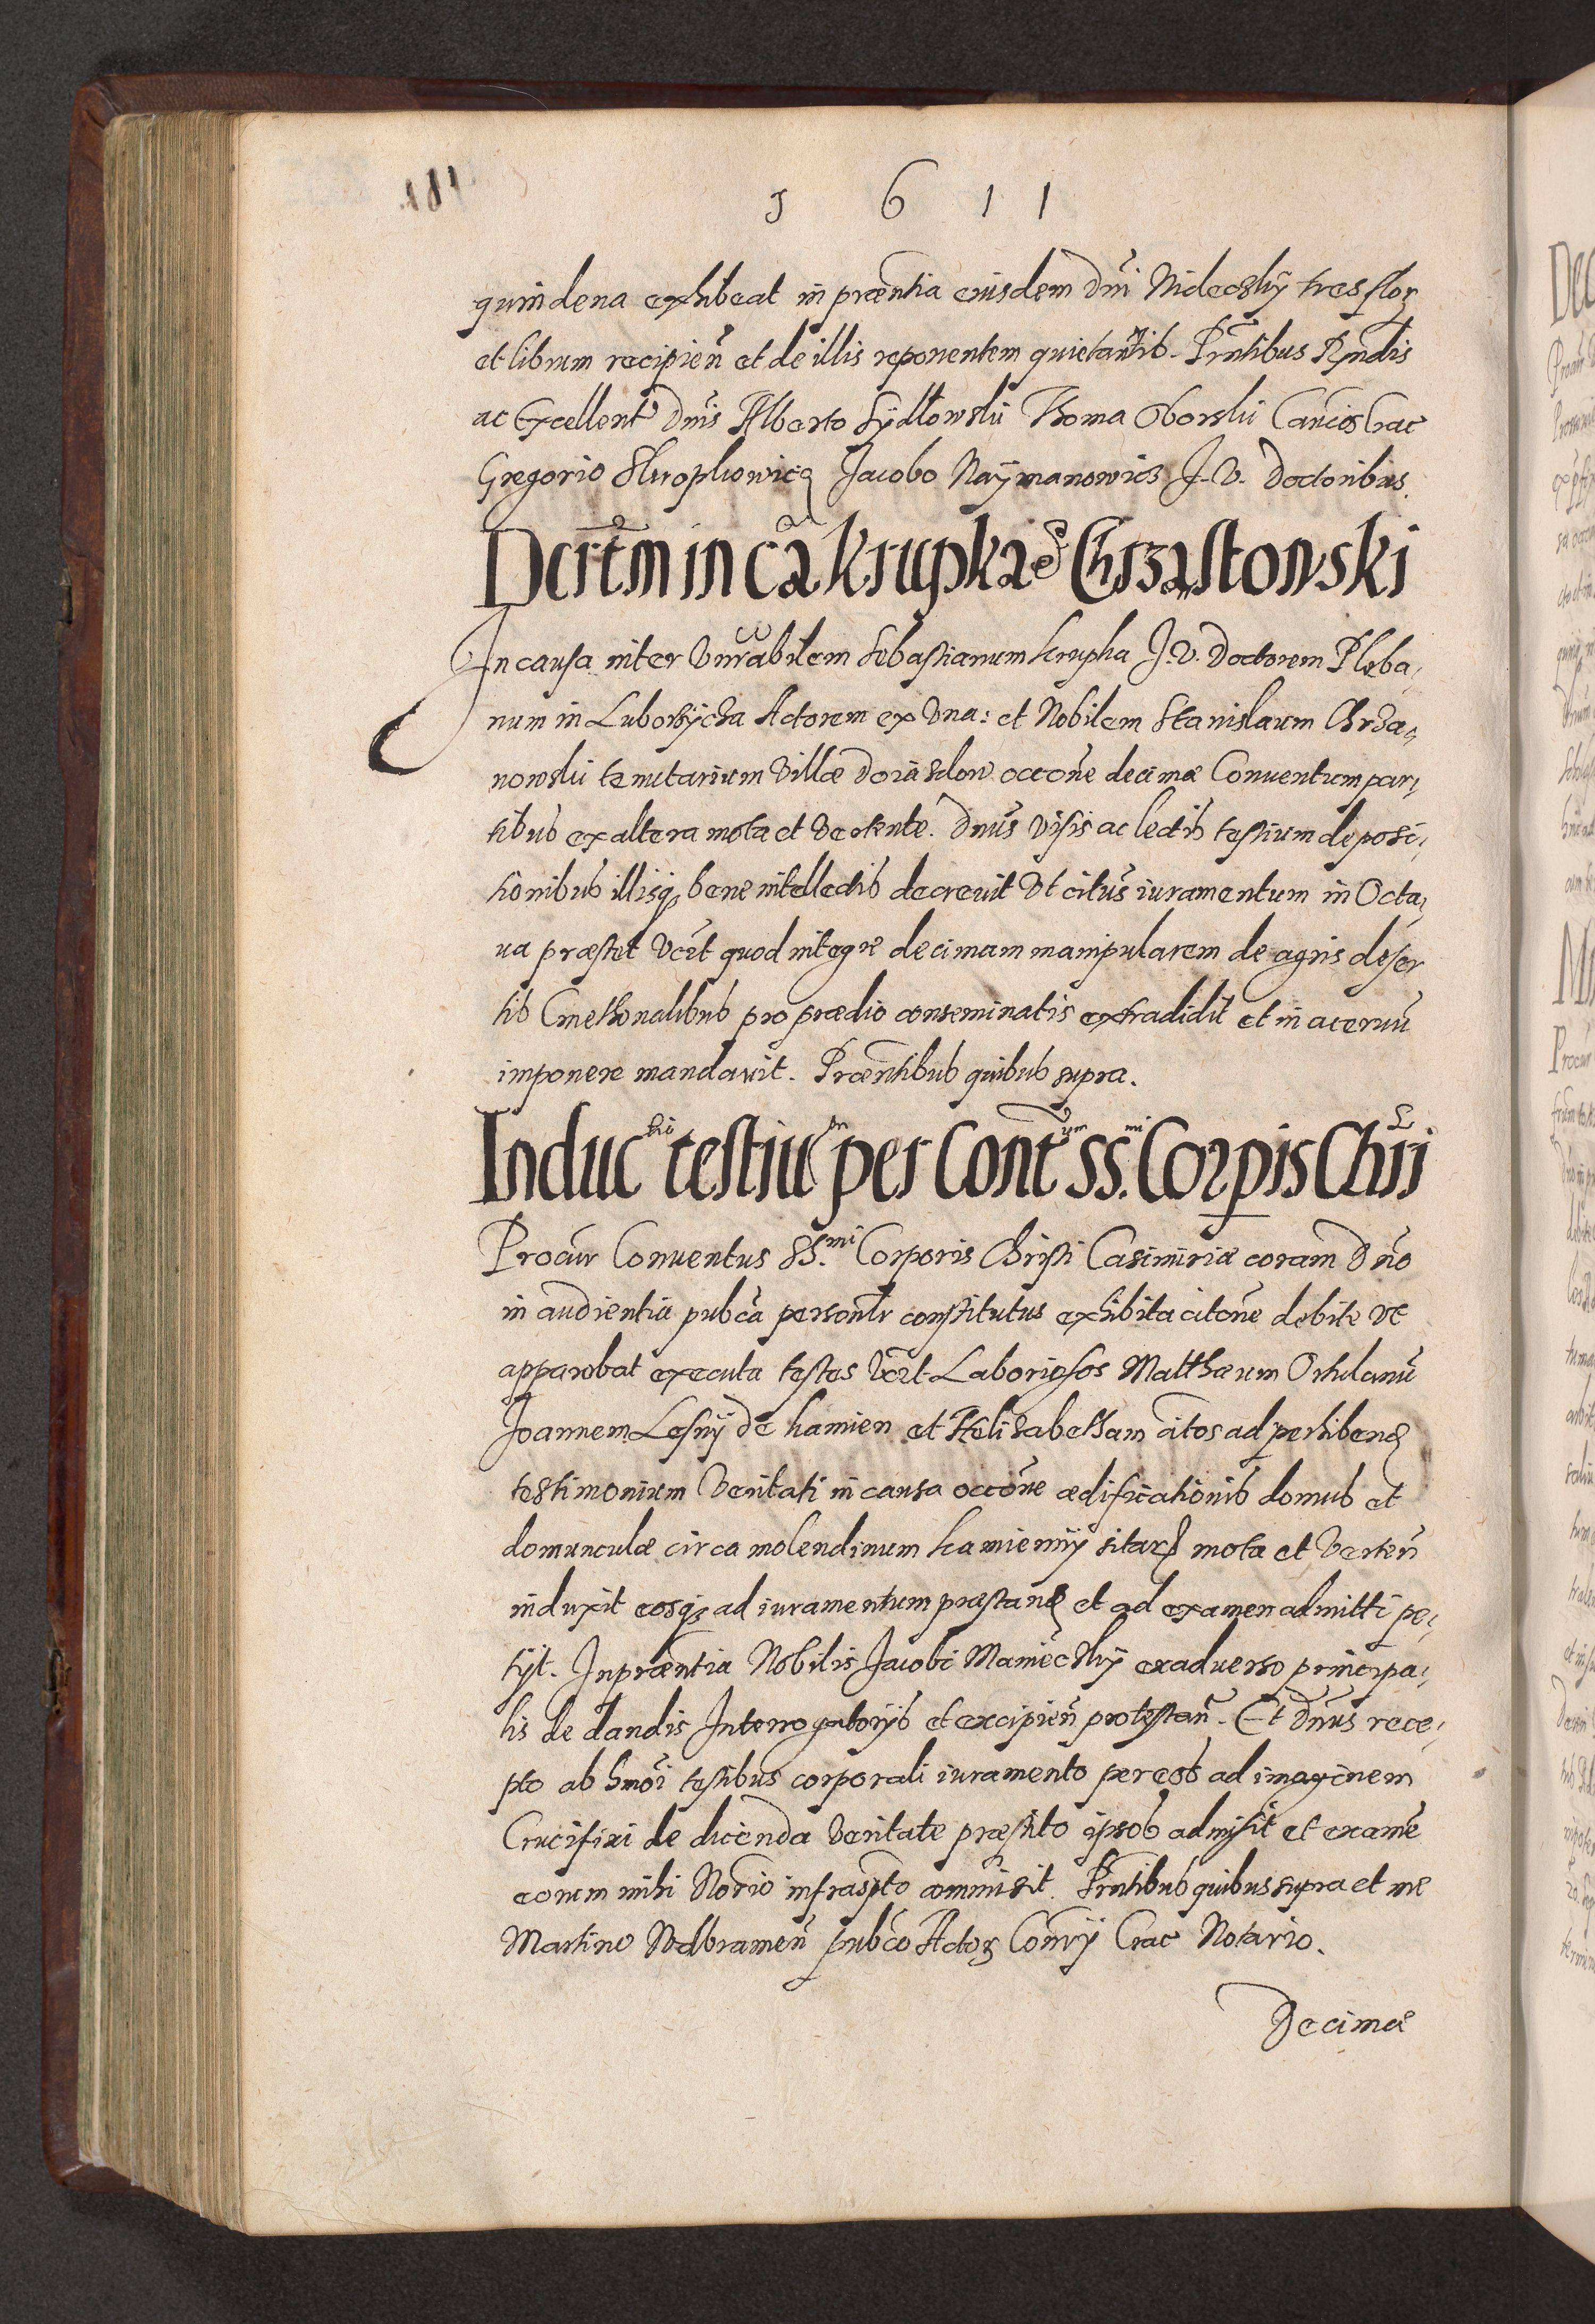 181
1 6 1 1
quindena exhibeat in præntia eiusdem Dni Nidecskij tres flor
et librum recipien et de illis reponentem quietantib. Prntibus Rndis
ac Excellent Dnis Alberto Sydłowski Thoma Oborski Canocis Crac
Gregorio Skrophowicz Jacobo Naymanowicz J. V. Doctoribus.
Dcrtm in ca Krupka & Chrząstowski
In causa inter Vnrabilem Sebastianum Krupka J. V. Doctorem Pleba,
num in Luborzycza Actorem ex Vna: et Nobilem Stanislaum Chrza,
nowski tenutarium Villæ dozasdow occone decimæ Conuentum par,
tibus ex altera mota et Vertente. Dnus Visis ac lectis testium deposi,
tionibus illisq bene intellectis decreuit Vt citus iuramentum in Octa,
ua præstet Vcet quod integre decimam manipularem de agris deser
tis Cmethonalibus pro prædio conseminatis extradidit et in aceruu
imponere mandavit. Præntibus quibus supra.
Inductio testium per Contum SS.mi Corpis Chri
Procur Conuentus SS.mi Corporis Christi Casimiriæ coram Dno
in audientia pubca personlr constitutus exhibita citone debite vt
apparebat executa testes Vcet Laboriosos Matthæum Ortulanu
Joannem Lesny de Kamien et Helisabetham citos ad perhibend
testimonium Veritati in causa occone ædificationis domus et
domunculæ circa molendinum Kamienny sitar mota et Verten
induxit eosq ad iuramentum præstand et ad examen admitti pe,
tijt. In præntia Nobilis Jacobi Maniecskij ex aduerso principa,
lis de dandis Interrogatorijs et excipien protestan. Et Dnus rece,
pto ab hmoi testibus corporali iuramento per eos ad imaginem
Crucifixi de dicenda Veritate præstito ipsos admisit et exame
eorum mihi Norio infrascpto commisit. Prntibus quibus supra et me
Martino Wolbramen pubco Actor Conrij Crac Notario.
Decimæ